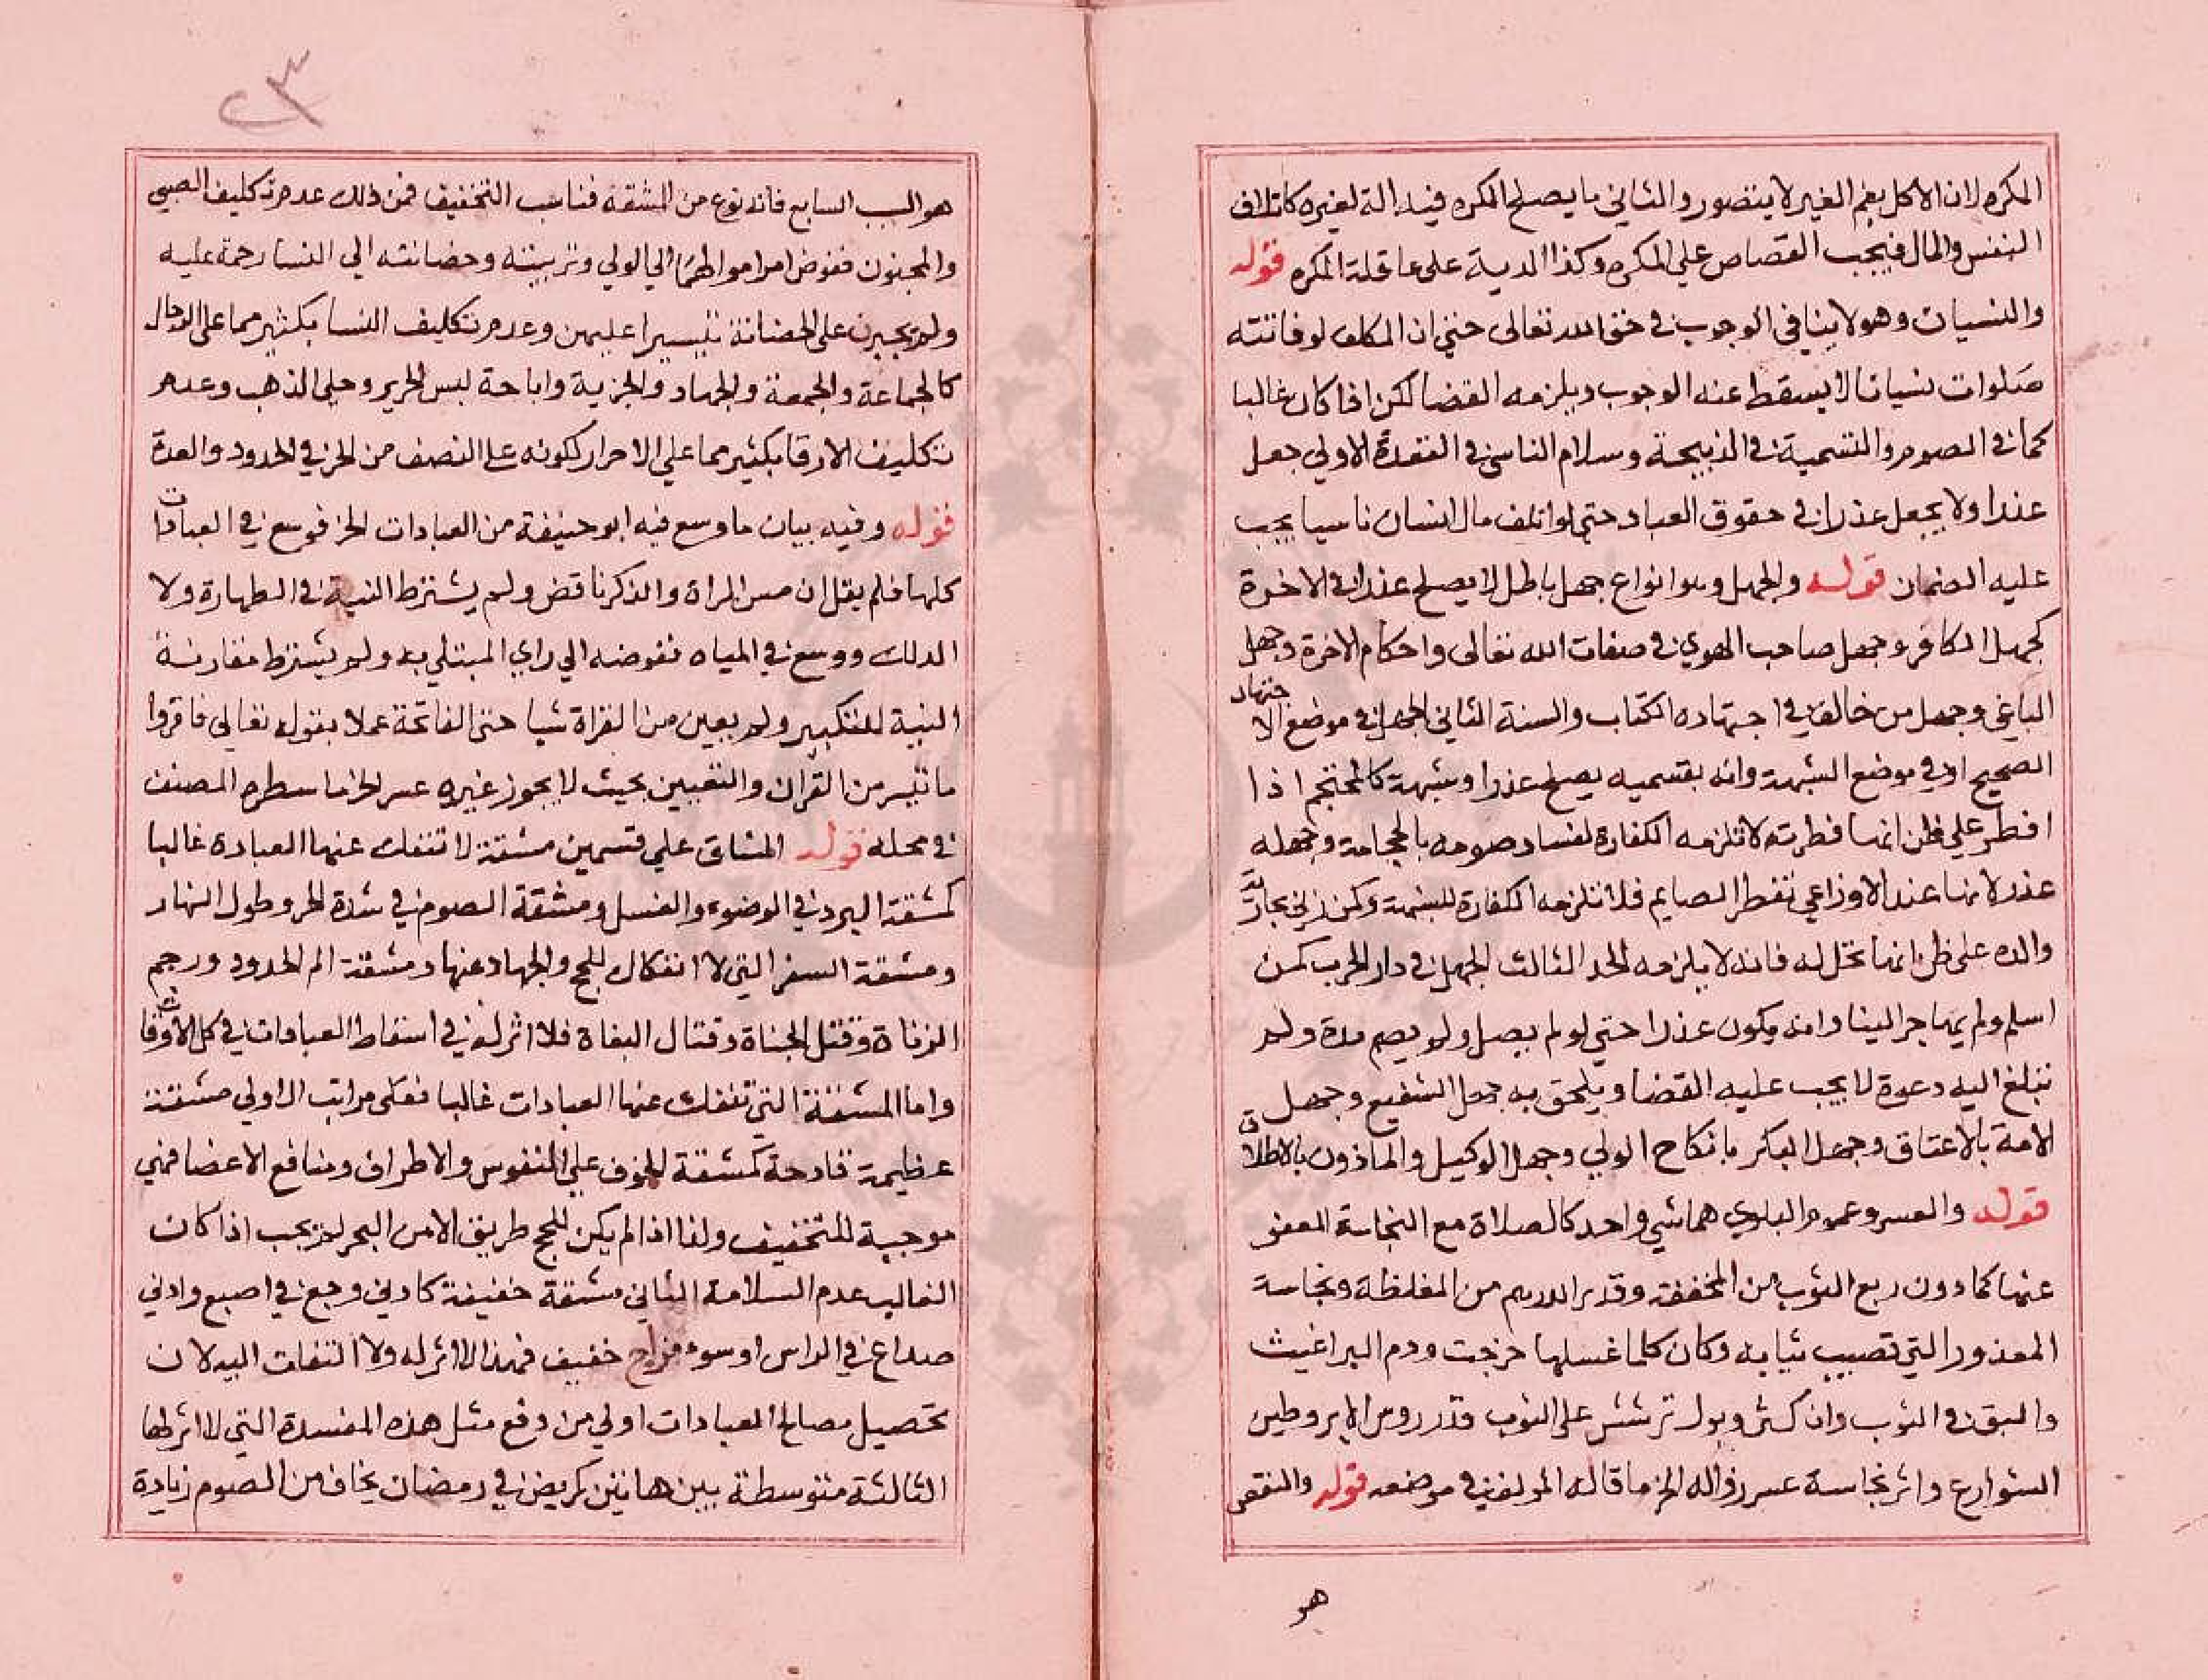 المكره لان الاكل بفم الغير لا يتصور والثاني ما يصلح المكره فيه الة لغيره كاتلاف
النفس والمال فيجب القصاص علي المكره وكذا الدية على عاقلة المكره قوله
والنسيان وهو لا ينافي الوجوب في حق الله تعالى حتي ان المكلف لو فاتته
صلوات نسيانا لا يسقط عنه الوجوب ويلزمه القضا لكن اذا كان غالبا
كما في الصوم والتسمية في الذبيحة وسلام الناسي في القعدة الاولي جعل
عذرا ولا يجعل عذرا في حقوق العباد حتي لو اتلف مال انسان ناسيا يجب
عليه الضمان قوله والجهل وهو انواع جهل باطل لا يصلح عذرا في الاخرة
كجهل الكافر وجهل صاحب الهوي في صفات الله تعالى واحكام الاخرة وجهل
الباغي وجهل من خالف في اجتهاده الكتاب والسنة الثاني الجهل في موضع الاجتهاد
الصحيح او في موضع الشبهة وانه بقسميه يصلح عذرا وشبهة كالمحتجم اذا
افطر علي ظن انها فطرته لا تلزمه الكفارة لفساد صومه بالحجامة وجهله
عذر لانها عند الاوزاعي تفطر الصايم فلا تلزمه الكفارة للشبهة وكمن زني بجارية
والده على ظن انها تحل له فانه لا يلزمه الحد الثالث الجهل في دار الحرب كمن
اسلم ولم يهاجر الينا وانه يكون عذرا حتي لو لم يصل ولم يصم مدة ولم
تبلغ اليه دعوة لا يجب عليه القضا ويلحق به جهل الشفيع وجهل
الامة بالاعتاق وجهل البكر بانكاح الولي وجهل الوكيل والماذون بالاطلاق
قوله والعسر وعموم البلوي هما شي واحد كالصلاة مع النجاسة المعفو
عنها كما دون ربع الثوب من المخففة وقدر الدرهم من المغلظة ونجاسة
المعذور التي تصيب ثيابه وكان كلما غسلها خرجت ودم البراغيث
والبق في الثوب وان كثر وبول ترشش على الثوب قدر روس الابر وطين
الشوارع واثر نجاسة عسر زواله الخ ما قاله المولف في موضعه قوله والنقص
هو
هو السبب السابع فانه نوع من المشقة فناسب التخفيف فمن ذلك عدم تكليف الصبي
والمجنون ففوض امر اموالهما الي الولي وتربيته وحضانته الي النسا رحمة عليه
ولم يجبرن على الحضانة تيسيرا عليهن وعدم تكليف النسا بكثير مما على الرجال
كالجماعة والجمعة والجهاد والجزية واباحة لبس الحرير وحلي الذهب وعدم
تكليف الارقا بكثير مما علي الاحرار ككونه على النصف من الحر في الحدود والعدة
قوله وفيه بيان ما وسع فيه ابو حنيفة من العبادات الخ فوسع في العبادات
كلها فلم يقل ان مس المراة والذكر ناقض ولم يشترط النية في الطهارة ولا
الدلك ووسع في المياه ففوضه الي راي المبتلي به ولم يشترط مقارنة
النية للتكبير ولم يعين من القراة شيا حتى الفاتحة عملا بقوله تعالى فاقروا
ما تيسر من القران والتعيين بحيث لا يجوز غيره عسر الخ ما سطره المصنف
في محله قوله المشاق علي قسمين مشقة لا تنفك عنها العبادة غالبا
كمشقة البرد في الوضوء والغسل ومشقة الصوم في شدة الحر وطول النهار
ومشقة السفر التي لا انفكاك للحج والجهاد عنها ومشقة الم الحدود ورجم
الزناة وقتل الجناة وقتال البغاة فلا اثر لها في اسقاط العبادات في كل الاوقات
واما المشقة التي تنفك عنها العبادات غالبا فعلى مراتب الاولي مشقة
عظيمة فادحة كمشقة الخوف علي النفوس والاطراف ومنافع الاعضا فهي
موجبة للتخفيف ولذا اذا لم يكن للحج طريق الا من البحر لم يجب اذا كان
الغالب عدم السلامة الثاني مشقة خفيفة كادني وجع في اصبع وادني
صداع في الراس او سوء مزاج خفيف فهذا لا اثر له ولا التفات اليه لان
تحصيل مصالح العبادات اولي من دفع مثل هذه المفسدة التي لا اثر لها
الثالثة متوسطة بين هاتين كمريض في رمضان يخاف من الصوم زيادة